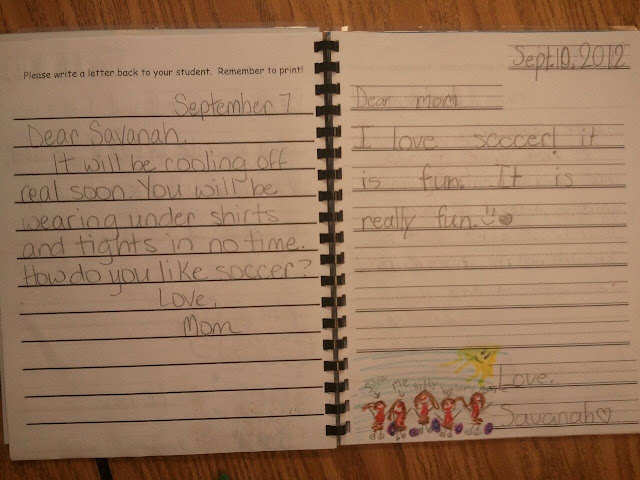 Please write a letter back to your student. Remember to print!
September 7
Dear Savanah,
It will be cooling off
real soon. You will be
wearing under shirts
and tights in no time.
How do you like soccer?
Love,
Mom
Sept.10, 2012
Dear mom
I love soccer! it
is fun. It is
really fun.
me
Love,
Savanah